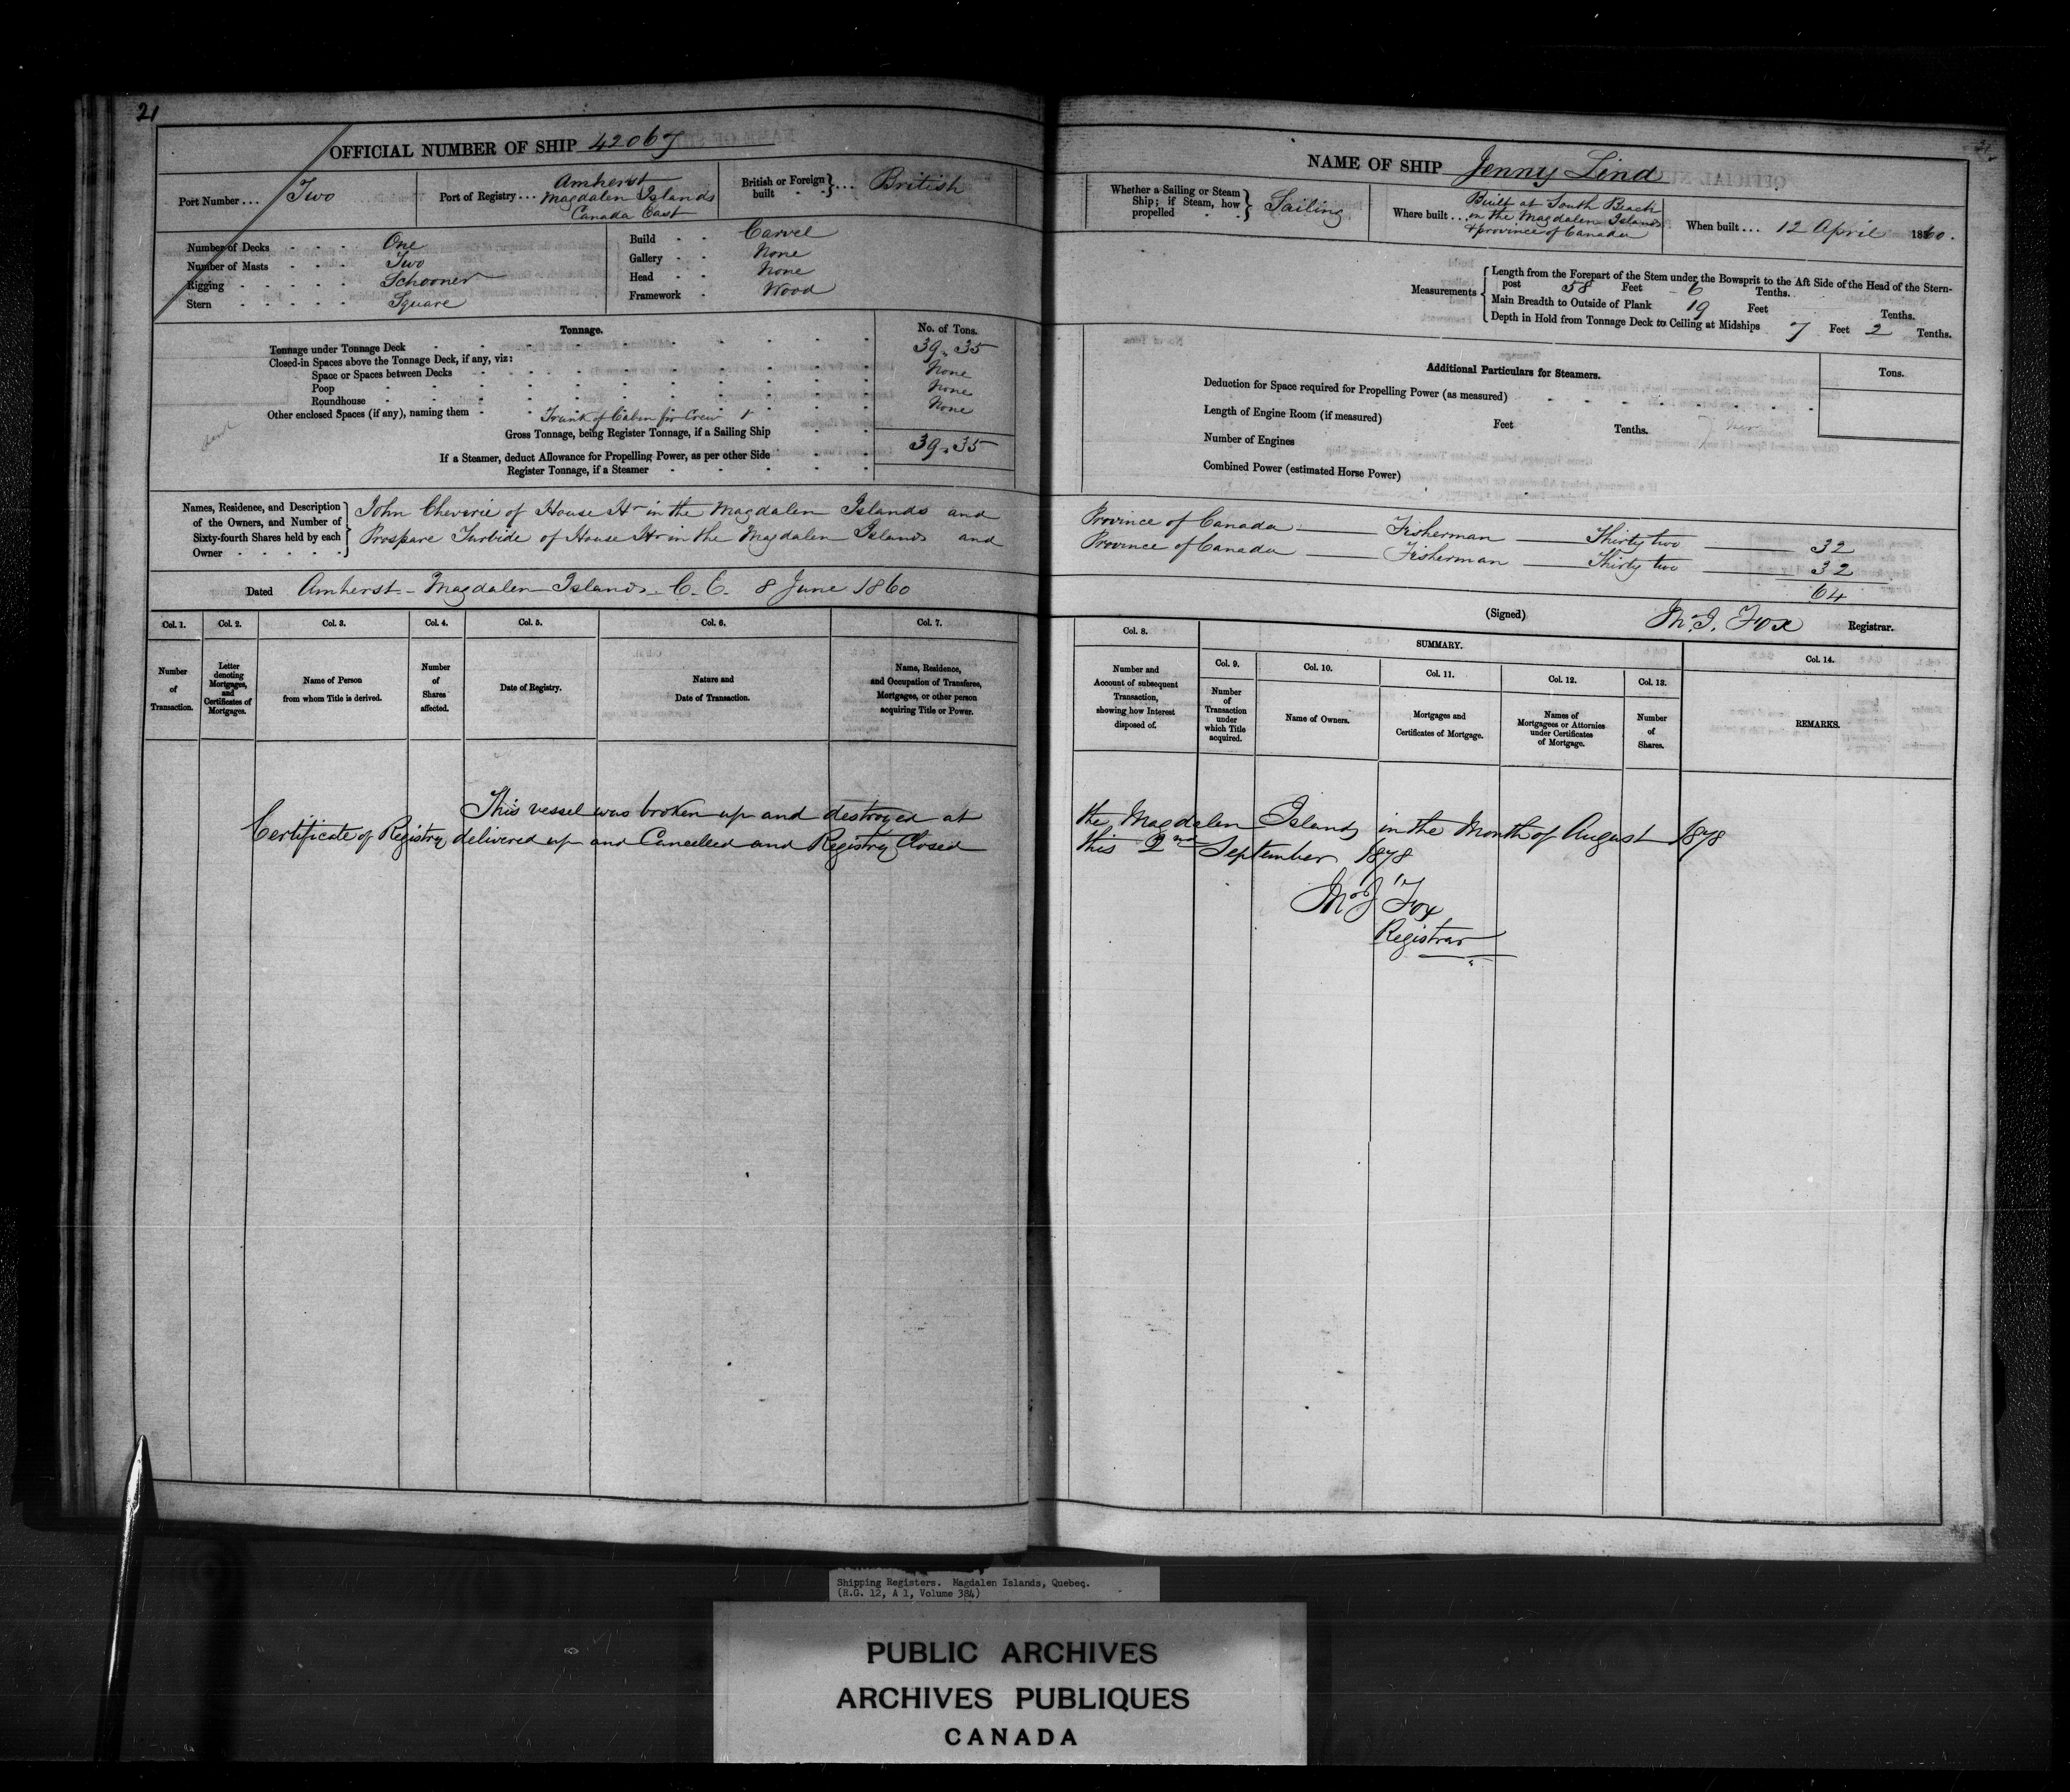 21
OFFICIAL NUMBER OF SHIP 42067
Port Number . . . Two
Port of Registry . . . Amherst
Magdalen Islands
Canada East
British or Foreign built } . . . British
Number of Decks One
Number of Masts Two
Rigging Schooner
Stern Square
Build Carvel
Gallery None
Head None
Framework Wood
Tonnage.
No. of Tons.
Tonnage under Tonnage Deck 39.35
Closed-in Spaces above the Tonnage Deck, if any, viz:
Space or Spaces between Decks None
Poop None
Roundhouse None
Other enclosed Spaces (if any), naming them Trunk of Cabin for Crew
Gross Tonnage, being Register Tonnage, if a Sailing Ship 39.35
If a Steamer, deduct Allowance for Propelling Power, as per other Side
Register Tonnage, if a Steamer
Names, Residence, and Description
of the Owners, and Number of
Sixty-fourth Shares held by each
Owner
John Cheverie of House Hr in the Magdalen Islands and
Prospare Turbide of House Hr in the Magdalen Islands and
Dated Amherst - Magdalen Islands. C. E. 8 June 1860
Col. 1. Col. 2. Col. 3. Col. 4. Col. 5. Col. 6. Col. 7.
Number
of
Transaction.
Letter
denoting
Mortgages,
and
Certificates of
Mortgages.
Name of Person
from whom Title is derived.
Number
of
Shares
affected.
Date of Registry.
Nature and
Date of Transaction.
Name, Residence,
and Occupation of Transferee,
Mortgagee, or other person
acquiring Title or Power.
This vessel was broken up and destroyed at
Certificate of Registry delivered up and Cancelled and Registry Closed
NAME OF SHIP Jenny Lind
Whether a Sailing or Steam
Ship; if Steam, how
propelled
Sailing
Where built . . . Built at South Beach
on the Magdalen Islands
& province of Canada
When built . . . 12 April 1860.
Measurements
Length from the Forepart of the Stem under the Bowsprit to the Aft Side of the Head of the Stern-
post 58 Feet 6 Tenths.
Main Breadth to Outside of Plank 19 Feet Tenths.
Depth in Hold from Tonnage Deck to Ceiling at Midships 7 Feet 2 Tenths.
Additional Particulars for Steamers.
Tons.
Deduction for Space required for Propelling Power (as measured)
Length of Engine Room (if measured) Feet Tenths.
Number of Engines
Combined Power (estimated Horse Power)
Province of Canada Fisherman Thirty two 32
Province of Canada Fisherman Thirty two 32
64
(Signed) Mr. J. Fox Registrar.
Col. 8.
SUMMARY.
Col. 9. Col. 10. Col. 11. Col. 12. Col. 13. Col. 14.
Number and
Account of subsequent
Transaction,
showing how Interest
disposed of.
Number
of
Transaction
under
which Title
acquired.
Name of Owners.
Mortgages and
Certificates of Mortgage.
Names of
Mortgagees or Attornies
under Certificates
of Mortgage.
Number
of
Shares.
REMARKS.
the Magdalen Islands in the Month of August 1878
this 2nd September 1878
J Fox
Registrar
Shipping Registers. Magdalen Islands, Quebec.
(R.G. 12, A 1, Volume 384)
PUBLIC ARCHIVES
ARCHIVES PUBLIQUES
CANADA